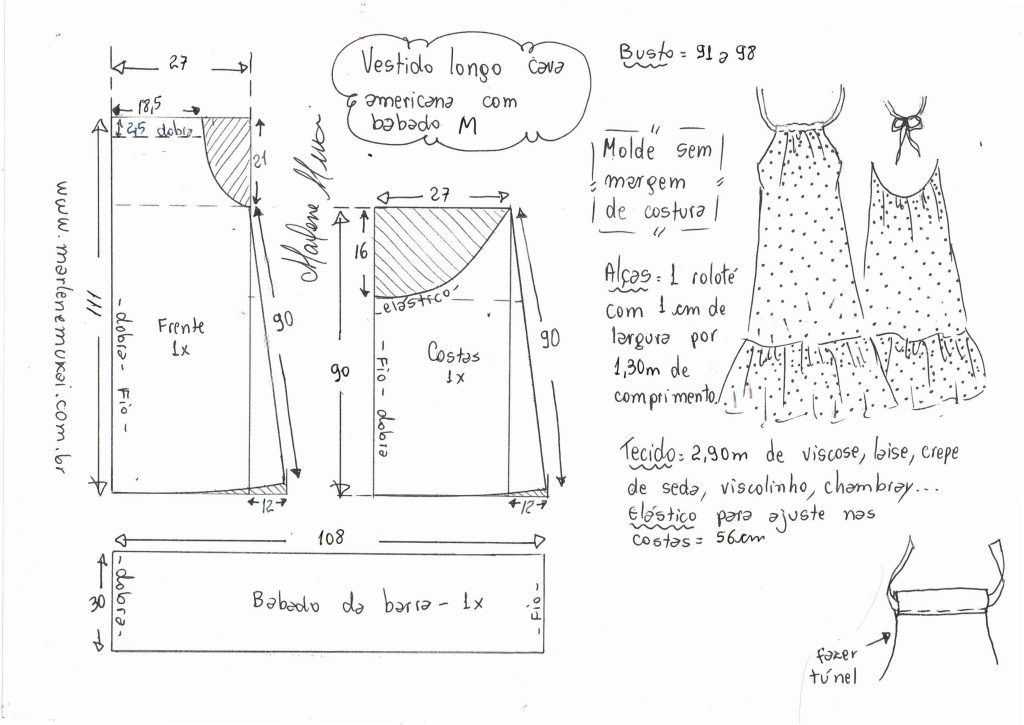 Vestido longo cava
americana com
babado M
Busto = 91 a 98
Molde sem
margem
de costura
Alças = 1 roloté
com 1 cm de
largura por
1,30m de
comprimento.
Tecido = 2,90m de viscose, laise, crepe
de seda, viscolinho, chambray...
Elástico para ajuste nas
costas = 56cm
27
18,5
2,5 dobra
21
111
- dobra - Fio -
Frente
1x
90
12
www.marlenemukai.com.br
Marlene Mukai
27
16
- elástico -
90
- Fio - dobra
Costas
1x
90
12
108
30
- dobra -
Babado da barra - 1x
- Fio -
fazer
túnel